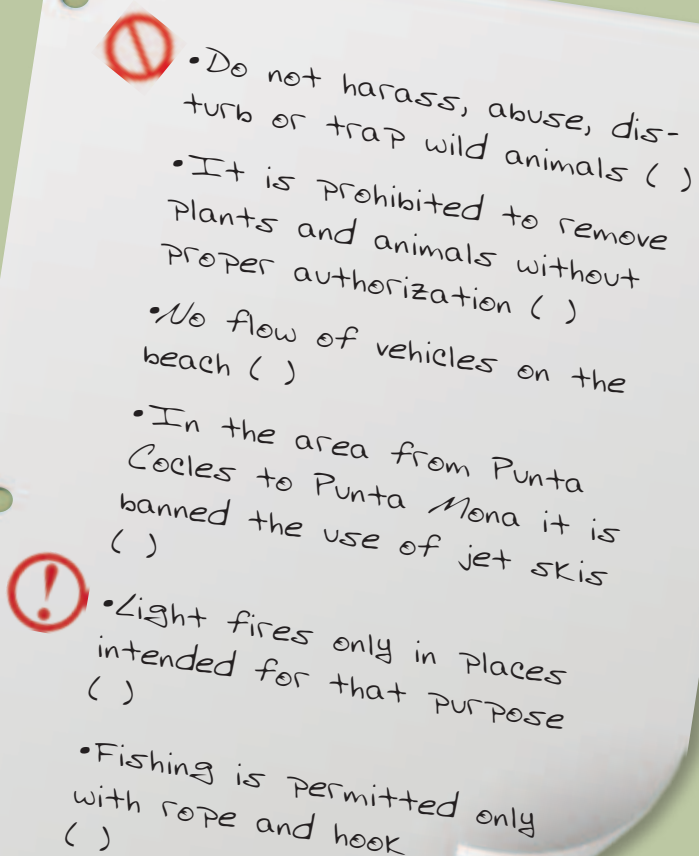 •Do not harass, abuse, dis-
turb or trap wild animals ( )
•It is prohibited to remove
plants and animals without
proper authorization ( )
•No flow of vehicles on the
beach ( )
•In the area from Punta
Cocles to Punta Mona it is
banned the use of jet skis
( )
•Light fires only in places
intended for that purpose
( )
•Fishing is permitted only
with rope and hook
( )